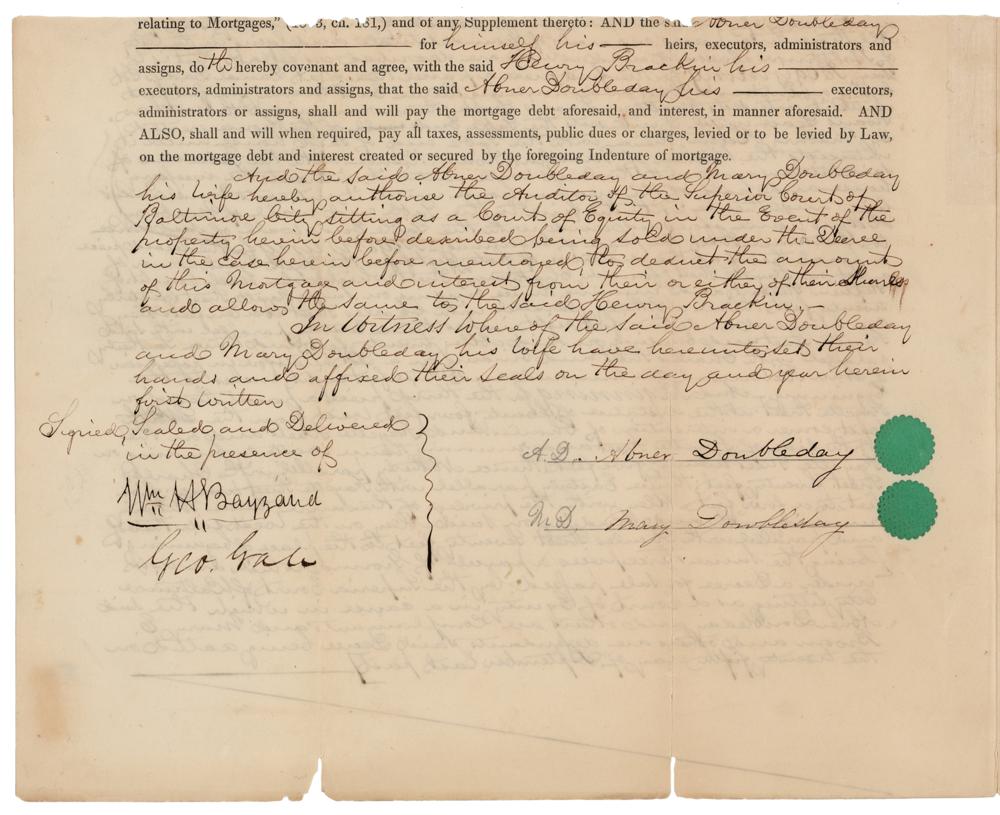 relating to Mortgages," ( 3, ch. 181,) and of any Supplement thereto: AND the s Abner Doubleday
for himself his heirs, executors, administrators and
assigns, doth hereby covenant and agree, with the said Henry Brackin his
executors, administrators and assigns, that the said Abner Doubleday, his executors,
administrators or assigns, shall and will pay the mortgage debt aforesaid, and interest, in manner aforesaid. AND
ALSO, shall and will when required, pay all taxes, assessments, public dues or charges, levied or to be levied by Law,
on the mortgage debt and interest created or secured by the foregoing Indenture of mortgage.
And the said Abner Doubleday and Mary Doubleday
his wife hereby authorise the Auditor of the Superior Court of
Baltimore City, sitting as a Court of Equity, in the Event of the
property herein before described being sold under the Decree
in the case herein before mentioned, to deduct the amount
of this Mortgage and interest from their or either of their Shares
and allow the same to the said Henry Brackin.—
In Witness Whereof the said Abner Doubleday
and Mary Doubleday his wife have hereunto set their
hands and affixed their seals on the day and year herein
first written
Signed, Sealed and Delivered
in the presence of
A.D. Abner Doubleday
Wm H Bayzand
M.D. Mary Doubleday
Geo. Gale